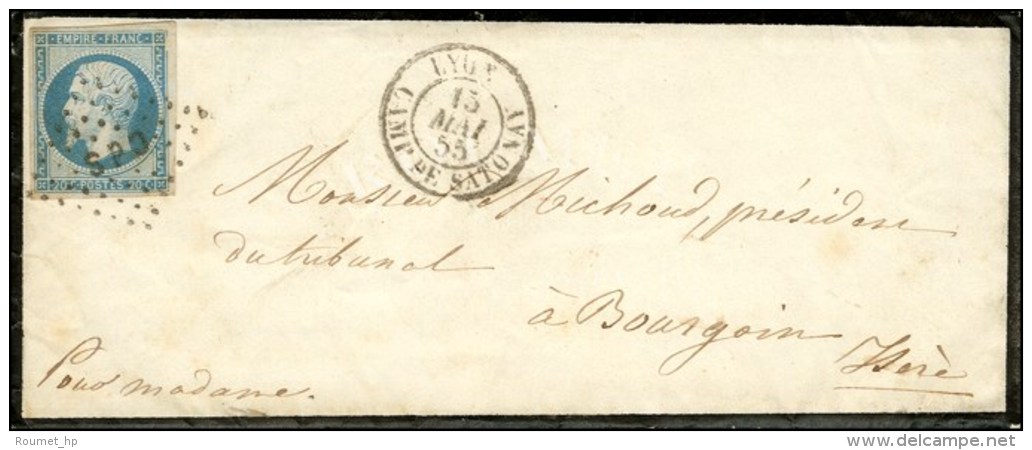 EMPIRE · FRANC ·
20 c · POSTES · 20 C
LYON
15
MAI
55
CAMP DE SATONNAY
Monsieur Michoud, président
du tribunal
à Bourgoin
Isère
Pour madame.
Roumet_hp
www.delcampe.net